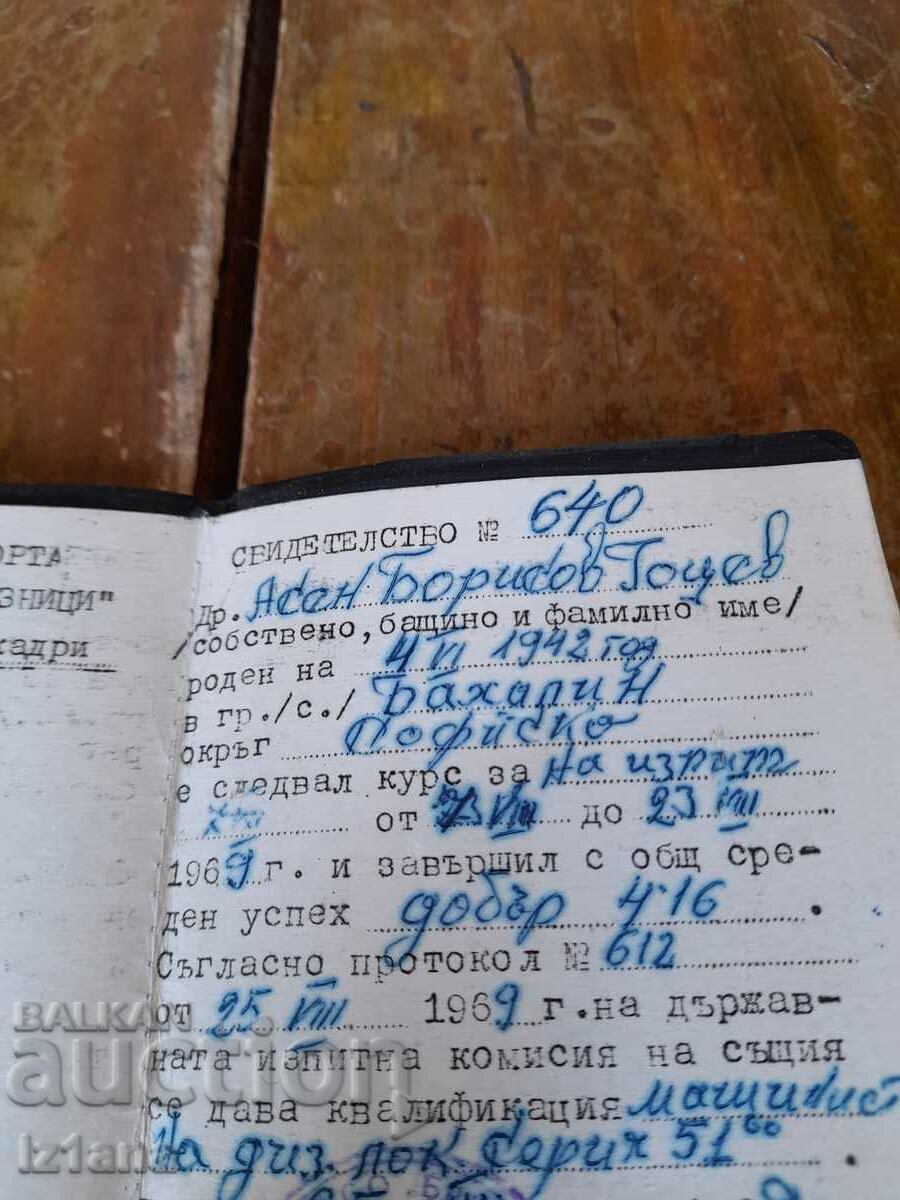 ОРТА
ЗНИЦИ"
кадри
СВИДЕТЕЛСТВО № 640
Др. Асен Борисов Гоцев
/собствено, бащино и фамилно име/
роден на 4 VI 1942 год
в гр./с./ Бахалин
окръг Софийско
е следвал курс за на изпит
от VIII до 23 VIII
1969 г. и завършил с общ сре-
ден успех добър 4.16 .
Съгласно протокол № 612
от 25 VIII 1969 г. на държав-
ната изпитна комисия на същия
се дава квалификация машинист
На диз. лок. серия 51
BALKAN
auction
iz1ana